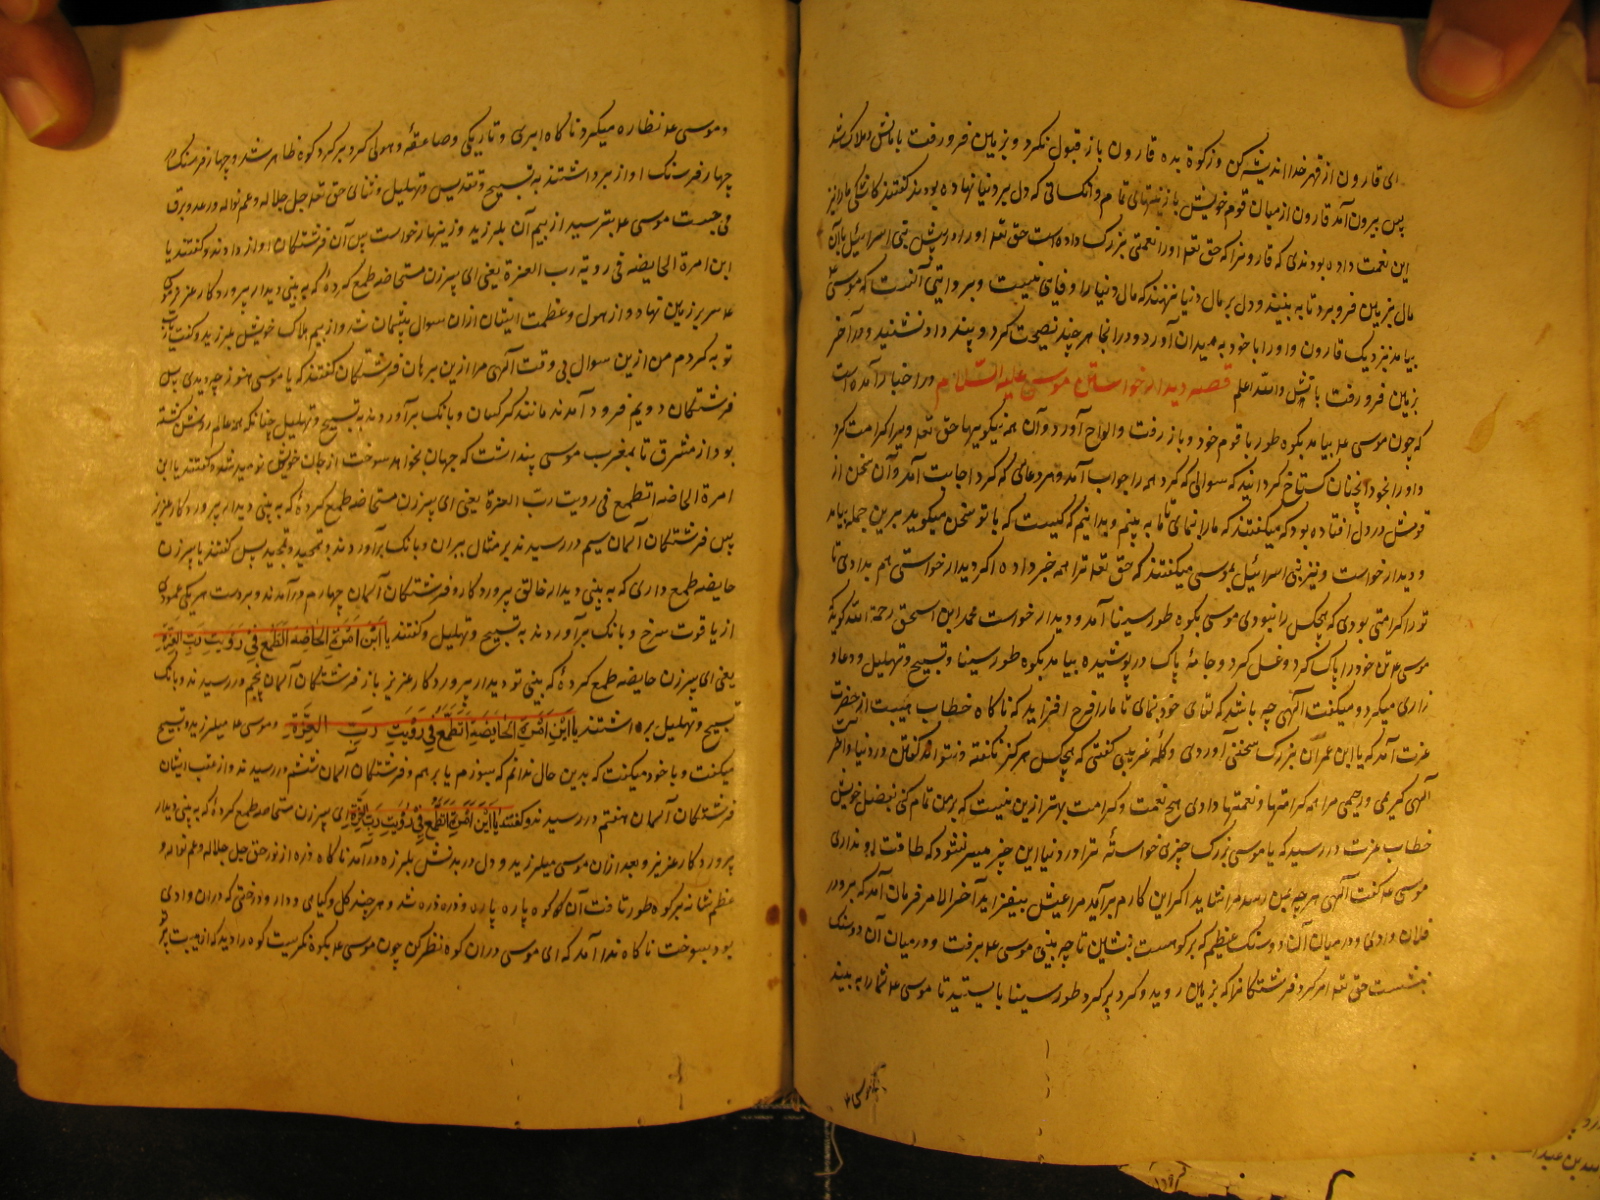 ای قارون از قهر خدا اندیشه کن و زکوة بده قارون باز قبول نکرد و بزمین فرو رفت با مالش و هلاک شد
پس بیرون آمد قارون از میان قوم خویش با زینتهای تمام و انکسانی که دل بر دنیا نهاده بودند کفتند کاشکی مارا نیز
این نعمت داده بودندی که قارونرا که حق تعه اورا نعمتی بزرک داده است حق تعه اورا در پیش بنی اسرائیل با آن
مال بزمین فرو برد تا به بینند و دل بر مال دنیا ننهند که مال دنیا را وفایی نیست و بروایتی آنست که موسی ع
بیامد نزدیک قارون و اورا با خود به میدان آورد و درانجا هر چند نصیحت کرد و پند داد نشنید و در آخر
بزمین فرو رفت با تنش والله اعلم قصه دیدار خواستن موسی علیه السلام در اخبار آمده است
که چون موسی ع بیامد بکوه طور با قوم خود و باز رفت و الواح آورد و آن همه نیکویها حق تعه ویرا کرامت کرد
و اورا بخود انچنان کستاخ کردانید که سوالی که کرد همه را جواب آمد و هر دعائی که کرد اجابت آمد و آن سخن از
قومش در دل افتاده بود که میکفتند که مارا بنمای تا ما به بینم و بدانیم که کیست که با تو سخن میکوید برین جمله بیامد
و دیدار خواست و نیز بنی اسرائیل بموسی میکفتند که حق تعه ترا همه خبر داده اکر دیدار خواستی هم بدادی تا
تورا کرامتی بودی که هیچکس را نبودی موسی بکوه طور سینا آمد و دیدار خواست محمد ابن اسحق رحمة الله کوید که
موسی ع تن خود را پاک کرد و غسل کرد و جامهٔ پاک در پوشیده بیامد بکوه طور سینا و تسبیح و تهلیل و دعا و
زاری میکرد و میکفت آلهی چه باشد که لقای خود بنمای تا مارا فرح افزاید که ناکاه خطاب هیبت از حضرت
عزت آمد که یا ابن عمران بزرک سخنی آوردی و کلمه غریبی کفتی که هیچکس هرکز نکفته و نتواند کفتن و در دنیا و آخر
آلهی کریمی و رحیمی مرا همه کرامتها و نعمتها دادی هیچ نعمت و کرامت بهتر ازین نیست که بر من تمام کنی بفضل خویش
خطاب عزت در رسید که یا موسی بزرک چیزی خواستهٔ ترا در دنیا این چیز میسر نشود که طاقت او نداری
موسی ع کفت آلهی هر چه بمن رسد مرا شاید اکر این کارم برآید مرا عیش بیفزاید آخر الامر فرمان آمد که برو در
فلان وادی و در میان آن دو سنک عظیم که بر کوهست بنشین تا چه بینی موسی ع برفت و در میان آن دو سنک
بنشست حق تعه امر کرد فرشتکانرا که بزمین روید و کرد بر کرد طور سینا بایستید تا موسی ع شمارا به بیند
و موسی ع نظاره میکرد ناکاه ابری و تاریکی و صاعقهٔ و هولی کرد بر کرد کوه ظاهر شد و چهار فرسنک در
چهار فرسنک آواز برداشتند به تسبیح و تقدیس و تهلیل و ثنای حق تعه جل جلاله و عم نواله و رعد و برق
می جست موسی ع بترسید از بیم آن بلرزید و زینهار خواست پس آن فرشتکان آواز دادند و کفتند یا
ابن امرة الحایضه فی رویة رب العزة یعنی ای پسر زن مستحاضه طمع کردهٔ که به بینی دیدار پرورد کار عز و موسی
ع سر بر زمین نهاد و از هول و عظمت ایشان ازان سوال پشیمان شد و از بیم هلاک خویش بلرزید و کفت
توبه کردم من ازین سوال بی وقت آلهی مرا ازین برهان فرشتکان کفتند که یا موسی هنوز چه دیدی پس
فرشتکان دویم فرود آمدند مانند کرکسان و بانک برآوردند به تسبیح و تهلیل چنانکه همه عالم روشن کشته
بود از مشرق تا بمغرب موسی پنداشت که جهان بخواهد سوخت از جان خویش نومید شد و کفتند یا ابن
امرة الحاضه اتطمع فی رویت رب العزة یعنی ای پسر زن مستحاضه طمع کردهٔ که به بینی دیدار پرورد کار عزیز
پس فرشتکان آسمان سیم در رسیدند بر مثال ببران و بانک برآوردند و تمجید و تمجید پس کفتند یا پسر زن
حایضه طمع داری که به بینی دیدار خالق پروردکار و فرشتکان آسمان چهارم در آمدند و بر دست هر یکی عمودی
از یاقوت سرخ و بانک برآوردند به تسبیح و تهلیل و کفتند یا ابن امرة الحاضه اتطمع فی رویت رب العزة
یعنی ای پسر زن حایضه طمع کردهٔ که بینی تو دیدار پرورد کار عزیز باز فرشتکان آسمان پنجم در رسیدند و بانک
تسبیح و تهلیل برداشتند یا ابن امرة الحایضة اتطمع فی رویت رب العزة و موسی ع میلرزید و تسبیح
میکفت و با خود میکفت که بدین حال ندانم که بسوزم یا برهم و فرشتکان آسمان ششم در رسیدند و از عقب ایشان
فرشتکان آسمان هفتم در رسیدند و کفتند یا ابن امرة اتطمع فی رویت رب العزة ای پسر زن مستحاضه طمع کردهٔ که به بینی دیدار
پرورد کار عزیز و بعد ازان موسی میلرزید و دل در بدنش بلرزه درآمد ناکاه ذره از نور حق جل جلاله و عم نواله و
عظم شانه بر کوه طور تافت آن کوه پاره پاره و ذره ذره شد و هر چند کل و کیاهی و دار و درختی که دران وادی
بود بسوخت ناکاه ندا آمد که ای موسی دران کوه نظر کن چون موسی ع بکوه نکریست کوه را دید که از هیبت